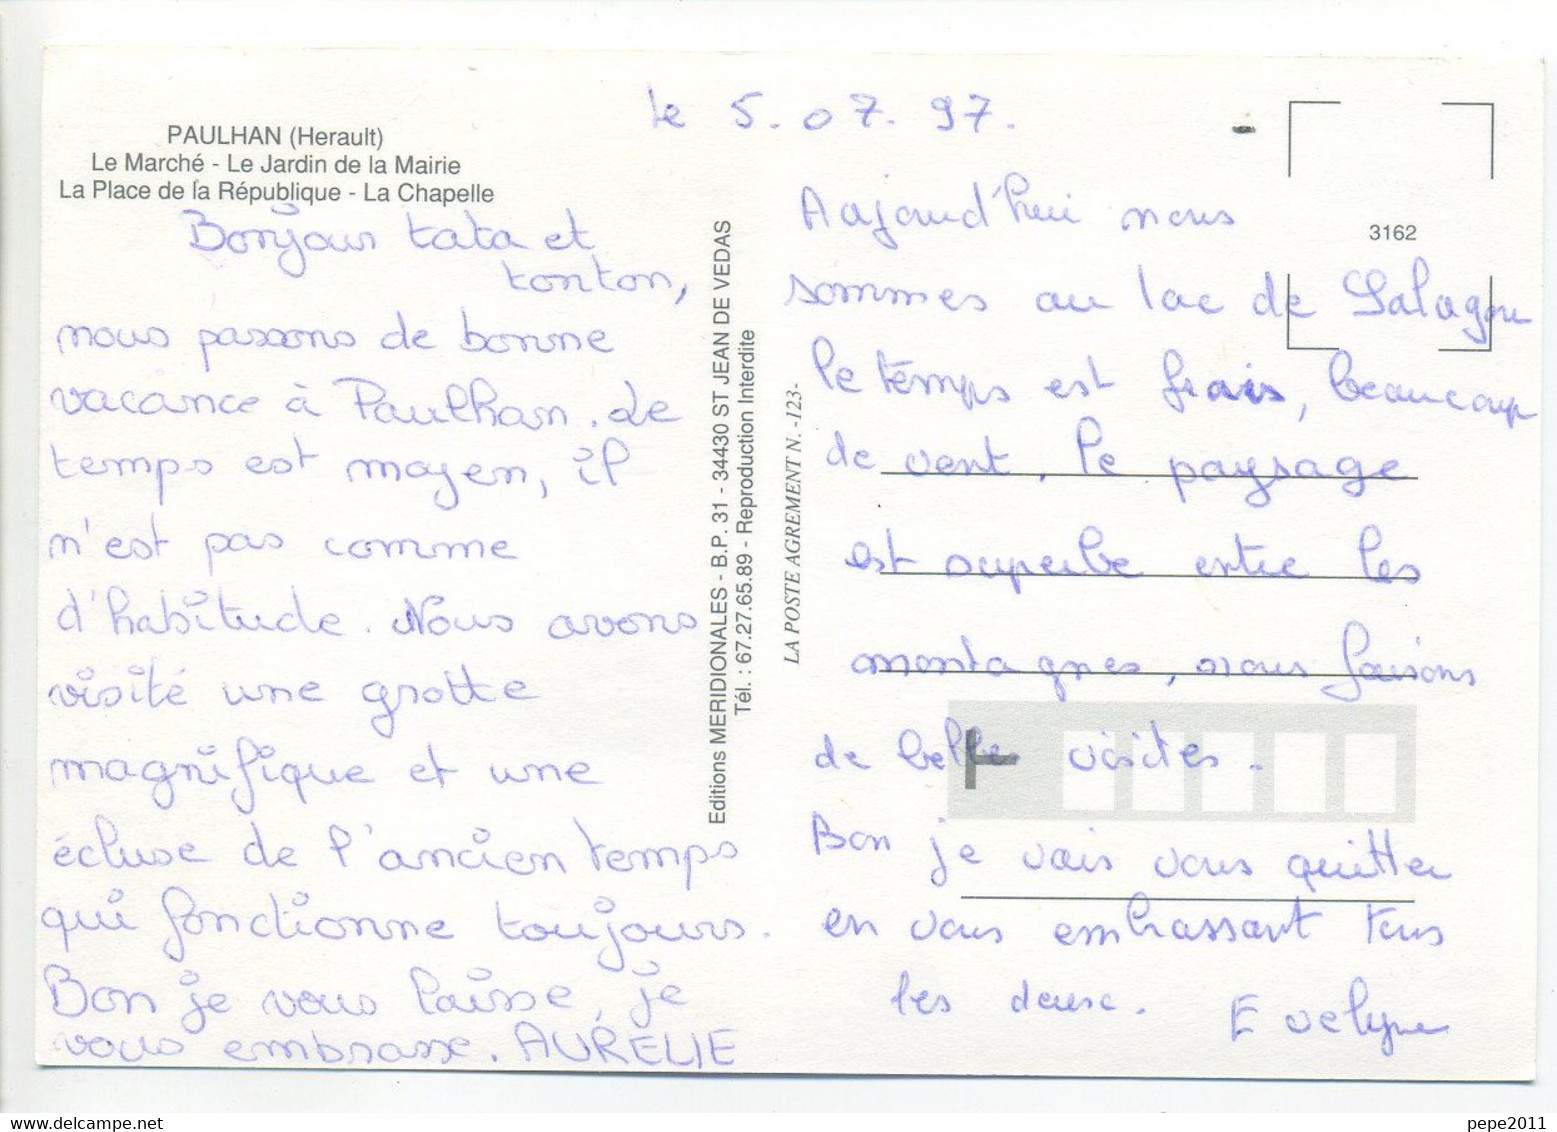 PAULHAN (Herault)
Le Marché - Le Jardin de la Mairie
La Place de la République - La Chapelle
Bonjour tata et
tonton,
nous passons de bonne
vacance à Paulhan. Le
temps est moyen, il
n'est pas comme
d'habitude. Nous avons
visité une grotte
magnifique et une
écluse de l'ancien temps
qui fonctionne toujours.
Bon je vous laisse, je
vous embrasse. AURÉLIE
Editions MERIDIONALES - B.P. 31 - 34430 ST JEAN DE VEDAS
Tél. : 67.27.65.89 - Reproduction Interdite
LA POSTE AGREMENT N. -123-
le 5.07.97.
3162
Aujourd'hui nous
sommes au lac de Salagou
le temps est frais, beaucoup
de vent, le paysage
est superbe entre les
montagnes, nous faisons
de belles visites.
Bon je vais vous quitter
en vous embrassant tous
les deux. Evelyne
T
pepe2011